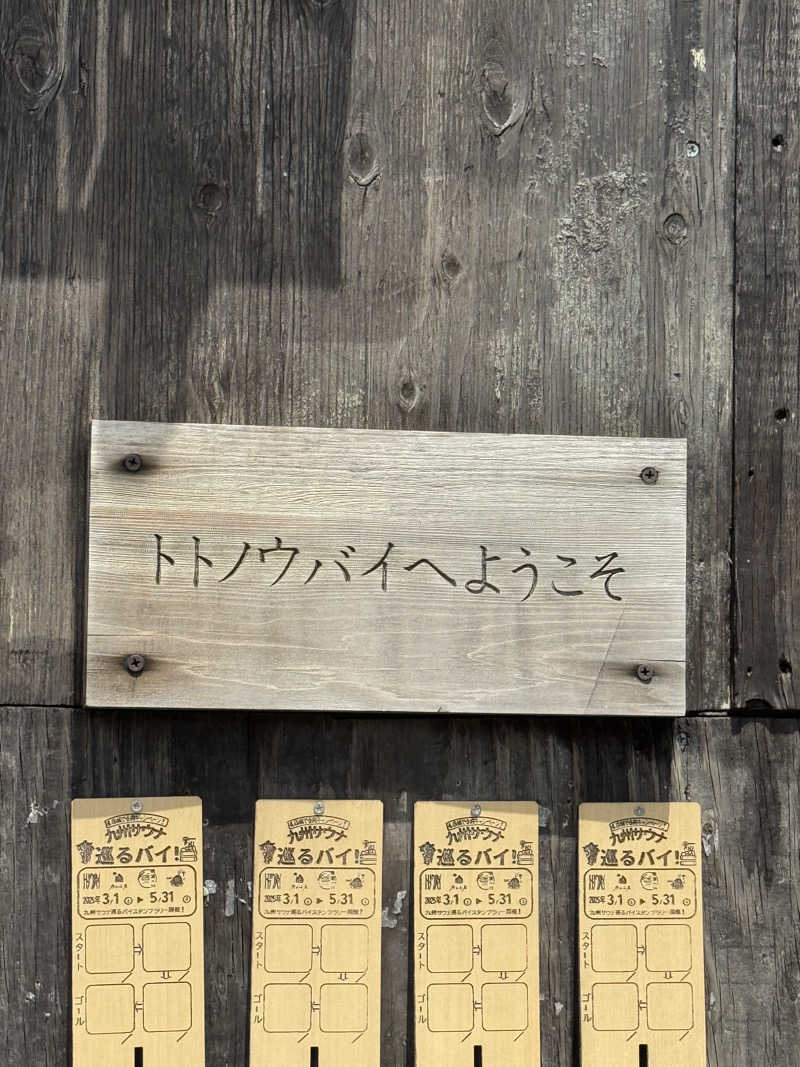 トトノウバイへようこそ
九州サウナ
巡るバイ!
2025年 3/1 ▶ 5/31
九州サウナ巡るバイスタンプラリー開催!
スタート
ゴール
九州サウナ
巡るバイ!
2025年 3/1 ▶ 5/31
九州サウナ巡るバイスタンプラリー開催!
スタート
ゴール
九州サウナ
巡るバイ!
2025年 3/1 ▶ 5/31
九州サウナ巡るバイスタンプラリー開催!
スタート
ゴール
九州サウナ
巡るバイ!
2025年 3/1 ▶ 5/31
九州サウナ巡るバイスタンプラリー開催!
スタート
ゴール